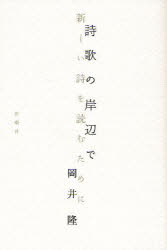 詩歌の岸辺で
新しい詩を読むために
岡井隆